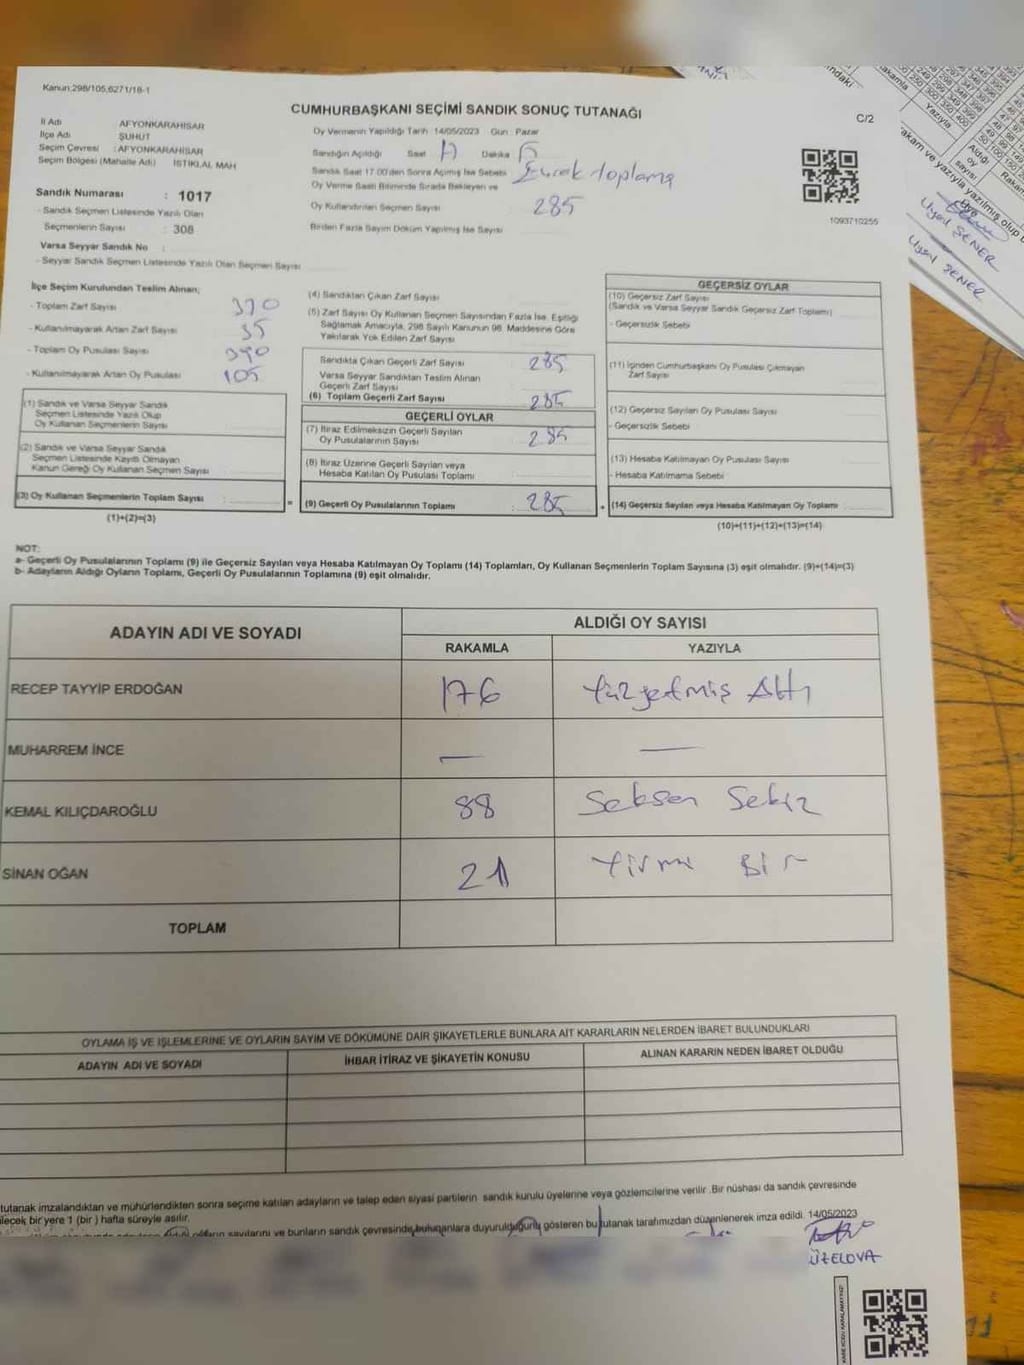 Kanun;298/105,6271/18-1
CUMHURBAŞKANI SEÇİMİ SANDIK SONUÇ TUTANAĞI
C/2
İl Adı AFYONKARAHİSAR
İlçe Adı ŞUHUT
Seçim Çevresi : AFYONKARAHİSAR
Seçim Bölgesi (Mahalle Adı) İSTİKLAL MAH
Sandık Numarası : 1017
- Sandık Seçmen Listesinde Yazılı Olan
Seçmenlerin Sayısı : 308
Varsa Seyyar Sandık No :
- Seyyar Sandık Seçmen Listesinde Yazılı Olan Seçmen Sayısı
Oy Vermenin Yapıldığı Tarih 14/05/2023 Gün : Pazar
Sandığın Açıldığı Saat Dakika
Sandık Saat 17.00'den Sonra Açılmış İse Sebebi toplama
Oy Verme Saati Bitiminde Sırada Bekleyen ve
Oy Kullandırılan Seçmen Sayısı 285
Birden Fazla Sayım Döküm Yapılmış İse Sayısı
1093710255
İlçe Seçim Kurulundan Teslim Alınan;
- Toplam Zarf Sayısı 370
- Kullanılmayarak Artan Zarf Sayısı 35
- Toplam Oy Pusulası Sayısı 390
- Kullanılmayarak Artan Oy Pusulası 105
(1) Sandık ve Varsa Seyyar Sandık
Seçmen Listesinde Yazılı Olup
Oy Kullanan Seçmenlerin Sayısı
(2) Sandık ve Varsa Seyyar Sandık
Seçmen Listesinde Kayıtlı Olmayan
Kanun Gereği Oy Kullanan Seçmen Sayısı
(3) Oy Kullanan Seçmenlerin Toplam Sayısı :
(1)+(2)=(3)
(4) Sandıktan Çıkan Zarf Sayısı
(5) Zarf Sayısı Oy Kullanan Seçmen Sayısından Fazla İse, Eşitliği
Sağlamak Amacıyla, 298 Sayılı Kanunun 98. Maddesine Göre
Yakılarak Yok Edilen Zarf Sayısı
Sandıkta Çıkan Geçerli Zarf Sayısı 285
Varsa Seyyar Sandıktan Teslim Alınan
Geçerli Zarf Sayısı
(6) Toplam Geçerli Zarf Sayısı 285
GEÇERLİ OYLAR
(7) İtiraz Edilmeksizin Geçerli Sayılan
Oy Pusulalarının Sayısı : 285
(8) İtiraz Üzerine Geçerli Sayılan veya
Hesaba Katılan Oy Pusulası Toplamı
= (9) Geçerli Oy Pusulalarının Toplamı : 285
GEÇERSİZ OYLAR
(10) Geçersiz Zarf Sayısı
(Sandık ve Varsa Seyyar Sandık Geçersiz Zarf Toplamı)
- Geçersizlik Sebebi
(11) İçinden Cumhurbaşkanı Oy Pusulası Çıkmayan
Zarf Sayısı
(12) Geçersiz Sayılan Oy Pusulası Sayısı
- Geçersizlik Sebebi
(13) Hesaba Katılmayan Oy Pusulası Sayısı
- Hesaba Katılmama Sebebi
+ (14) Geçersiz Sayılan veya Hesaba Katılmayan Oy Toplamı
(10)+(11)+(12)+(13)=(14)
NOT:
a- Geçerli Oy Pusulalarının Toplamı (9) ile Geçersiz Sayılan veya Hesaba Katılmayan Oy Toplamı (14) Toplamları, Oy Kullanan Seçmenlerin Toplam Sayısına (3) eşit olmalıdır. (9)+(14)=(3)
b- Adayların Aldığı Oyların Toplamı, Geçerli Oy Pusulalarının Toplamına (9) eşit olmalıdır.
ADAYIN ADI VE SOYADI
ALDIĞI OY SAYISI
RAKAMLA YAZIYLA
RECEP TAYYİP ERDOĞAN 176 Yüzyetmiş Altı
MUHARREM İNCE — —
KEMAL KILIÇDAROĞLU 88 Seksen Sekiz
SİNAN OĞAN 21 Yirmi Bir
TOPLAM
OYLAMA İŞ VE İŞLEMLERİNE VE OYLARIN SAYIM VE DÖKÜMÜNE DAİR ŞİKAYETLERLE BUNLARA AİT KARARLARIN NELERDEN İBARET BULUNDUKLARI
ADAYIN ADI VE SOYADI İHBAR İTİRAZ VE ŞİKAYETİN KONUSU ALINAN KARARIN NEDEN İBARET OLDUĞU
tutanak imzalandıktan ve mühürlendikten sonra seçime katılan adayların ve talep eden siyasi partilerin sandık kurulu üyelerine veya gözlemcilerine verilir .Bir nüshası da sandık çevresinde
ilecek bir yere 1 (bir ) hafta süreyle asılır.
sayılarını ve bunların sandık çevresinde bulunanlara duyurulduğunu gösteren bu tutanak tarafımızdan düzenlenerek imza edildi. 14/05/2023
ÜZELOVA
Yazıyla
Aldığı
oy
sayısı
akam ve yazıyla yazılmış olup
Üye
Uysal ŞENER
Uysal ŞENER